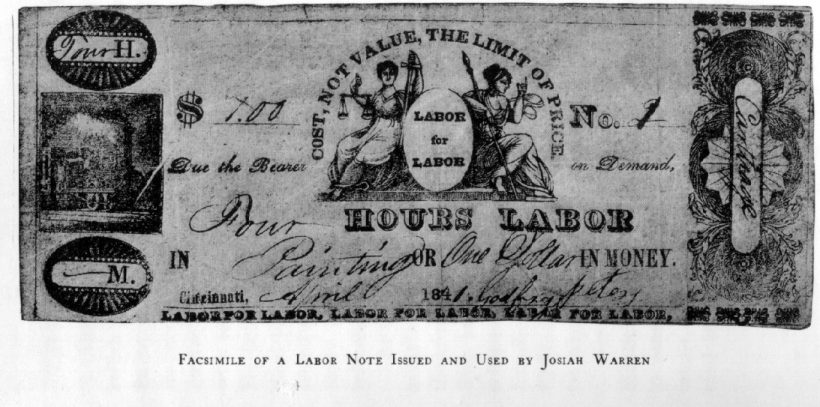 Four H.
COST, NOT VALUE, THE LIMIT OF PRICE.
$ 1.00
LABOR
for
LABOR
No. 1
Due the Bearer on Demand,
Four HOURS LABOR
IN Painting OR One Dollar IN MONEY.
M.
Cincinnati, April 1841.
LABOR FOR LABOR, LABOR FOR LABOR, LABOR FOR LABOR,
FACSIMILE OF A LABOR NOTE ISSUED AND USED BY JOSIAH WARREN